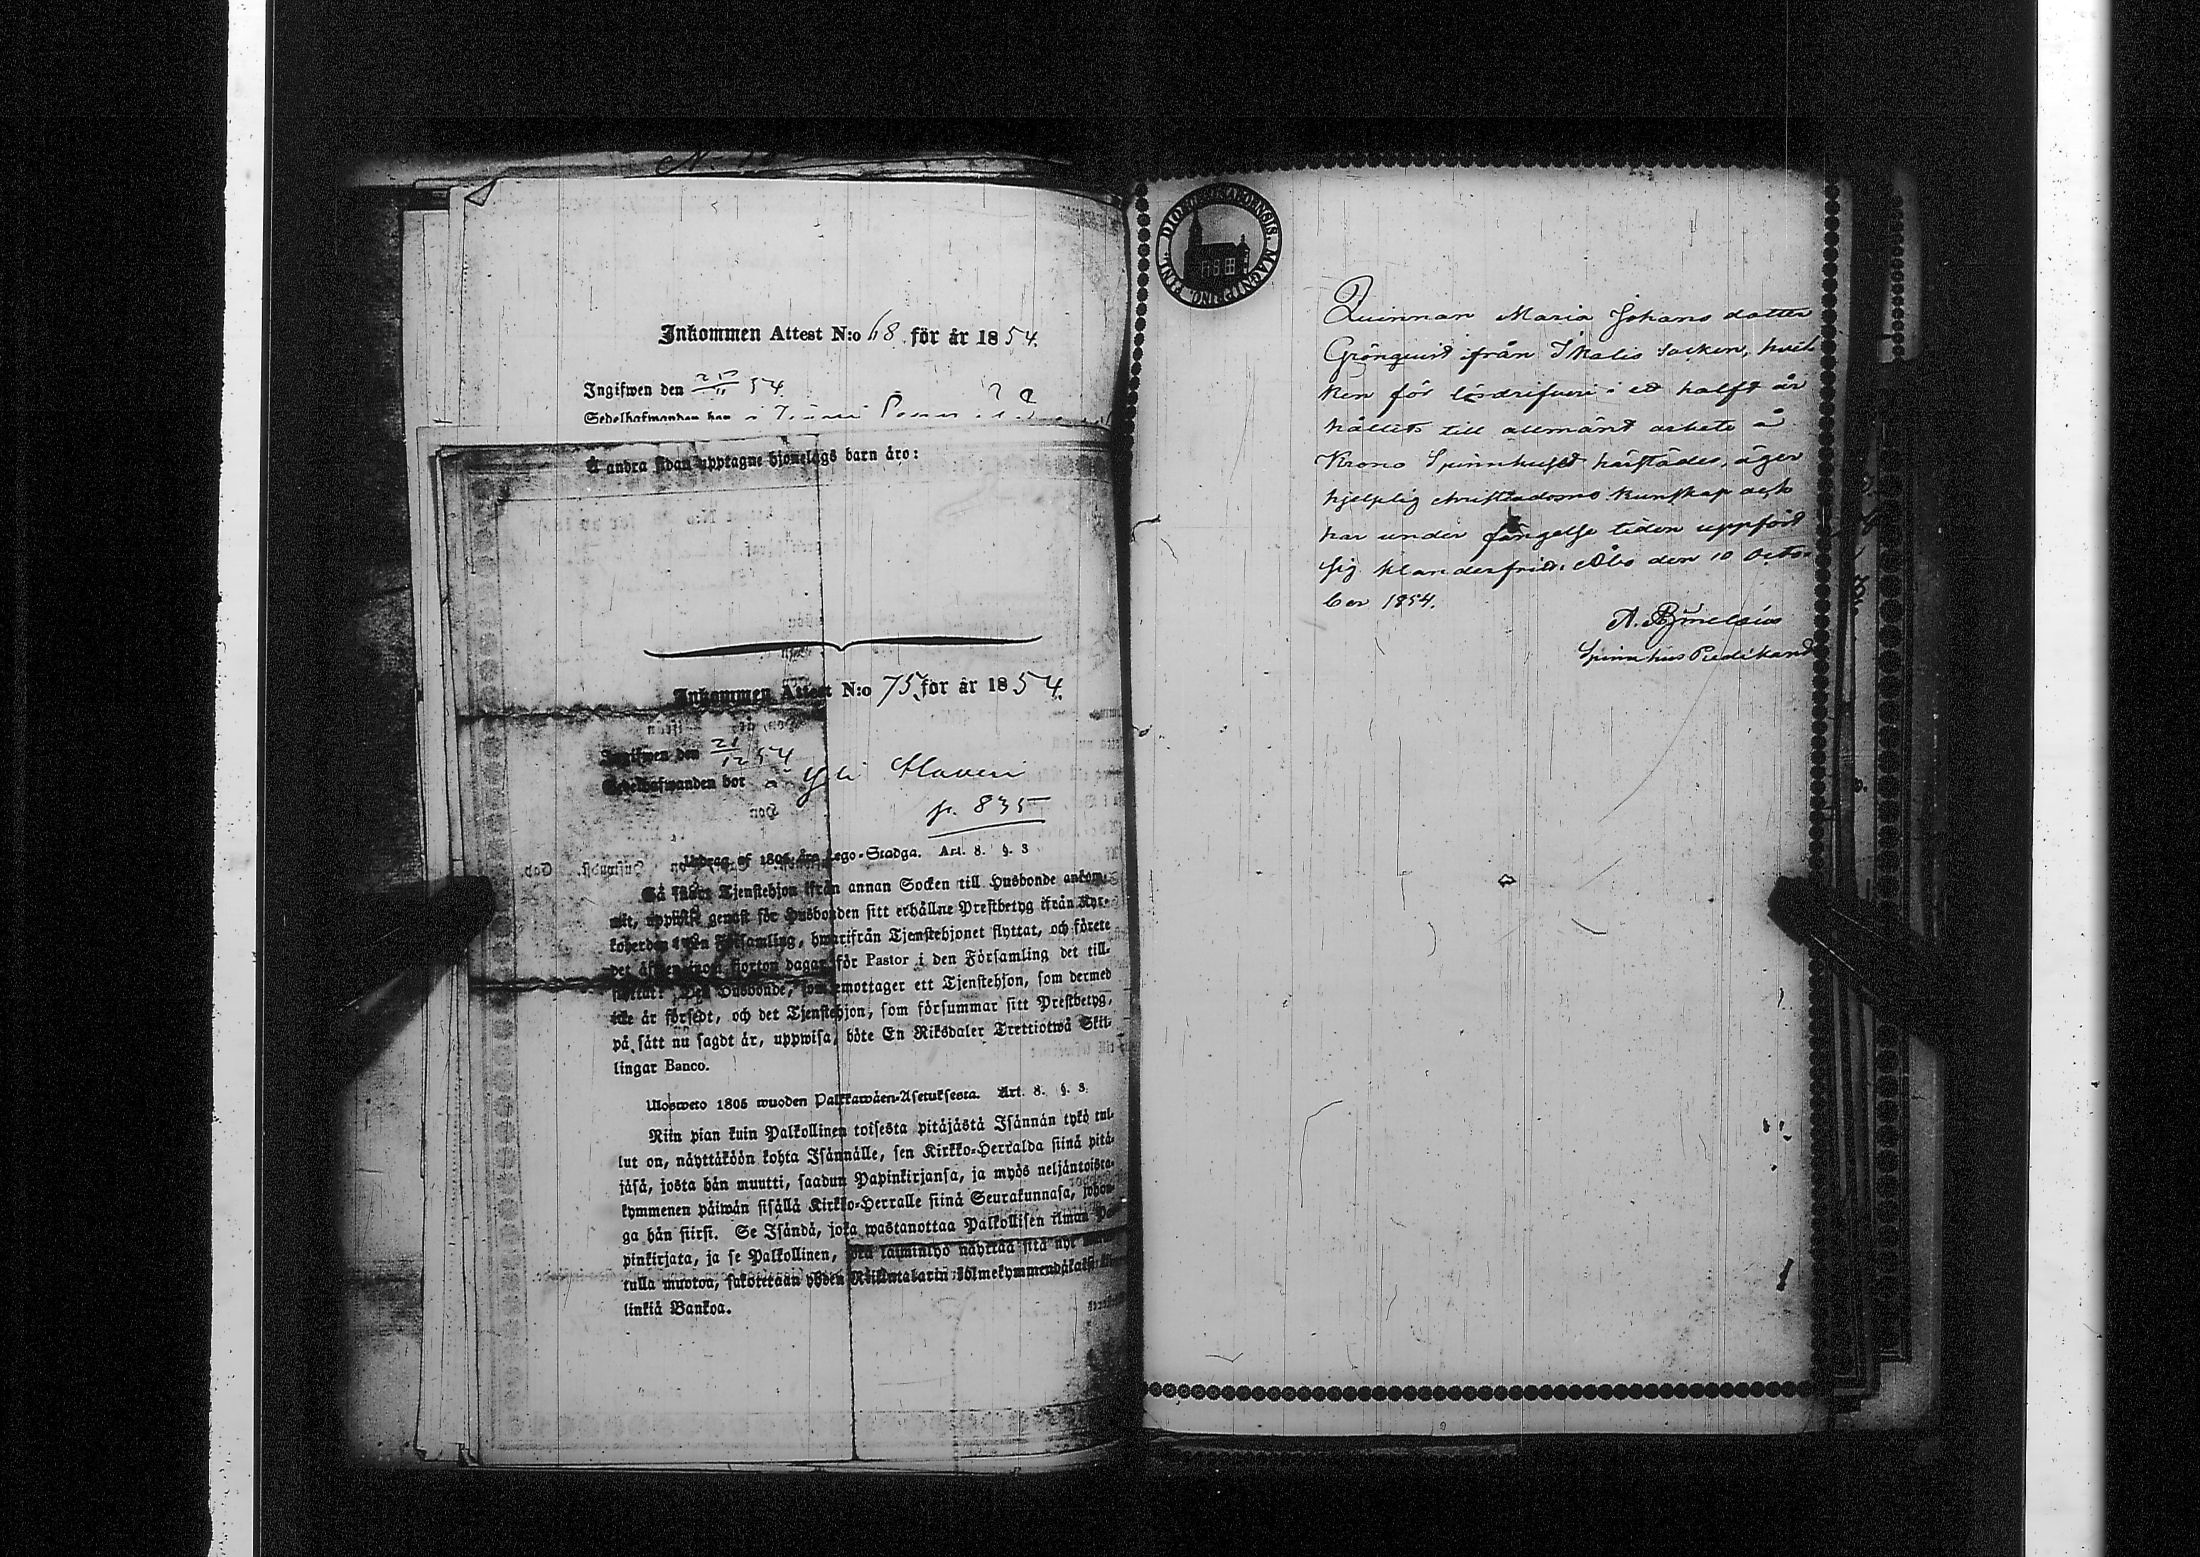 Inkommen Attest N:o 68 för år 1854.
Ingifwen den 54.
Sedelhafwanden bor i
Å andra sidan upptagne hjonelags barn äro:
Inkommen Attest N:o 75 för år 1854.
Ingifwen den 21/12 54
Sedelhafwanden bor
p. 835
Utdrag af 1805 års Lego-Stadga. Art. 8. §. 3
Så snart Tjenstehjon ifrån annan Socken till Husbonde ankom-
mit, uppwise genast för Husbonden sitt erhållne Prestbetyg ifrån Kyr-
koherden i den Församling, hwarifrån Tjenstehjonet flyttat, och förete
det äfwen inom fjorton dagar för Pastor i den Församling det till-
flyttat. Den Husbonde, som emottager ett Tjenstehjon, som dermed
icke är försedt, och det Tjenstehjon, som försummar sitt Prestbetyg,
på sätt nu sagdt är, uppwisa, böte En Riksdaler Trettiotwå Skil-
lingar Banco.
Ulosweto 1805 wuoden Palkkawäen-Asetuksesta. Art. 8. §. 3.
Niin pian kuin Palkollinen toisesta pitäjästä Isännän tykö tul-
lut on, näyttäköön kohta Isännälle, sen Kirkko-Herralda siinä pitä-
jäsä, josta hän muutti, saadun Papinkirjansa, ja myös neljäntoista-
kymmenen päiwän sisällä Kirkko-Herralle siinä Seurakunnasa, johon-
ga hän siirsi. Se Isändä, joka wastanottaa Palkollisen ilman Pa-
pinkirjata, ja se Palkollinen, joka laimintyö näyttää sitä nyt
tulla muotoa, sakotetaan yhden Riikintalarin kolmekymmendäkaksi
linkiä Bankoa.
DIOECES. ABOENSIS. MAGNI PRINC. FINL.
Quinnan Maria Johans dotter
Grönqvist från Ikalis Socken, hvil-
ken för lösdrifveri i ett halft år
hållits till allmänt arbete å
Krono Spinnhuset härstädes, äger
hjelplig christendoms kunskap och
har under fängelse tiden uppfört
sig klanderfritt. Åbo den 10 Octo-
ber 1854.
A.
Spinnhus Predikant